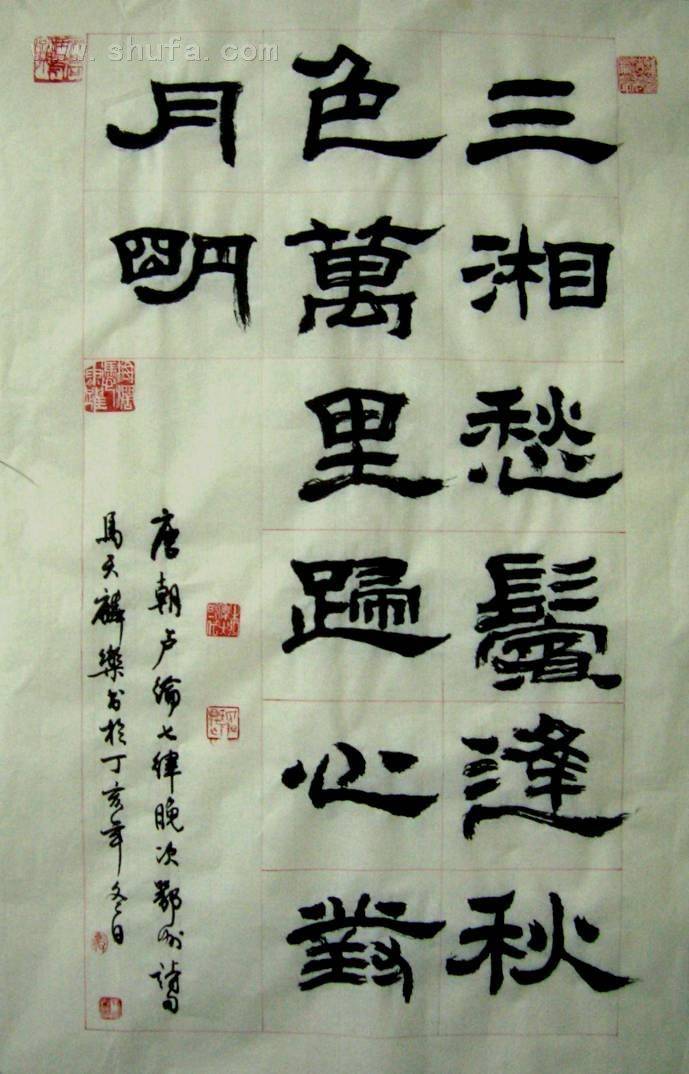 www.shufa.com
三湘愁鬢逢秋
色萬里歸心對
月明
唐朝卢綸七律晚次鄂州詩句
馬天麟樂书於丁亥年冬日